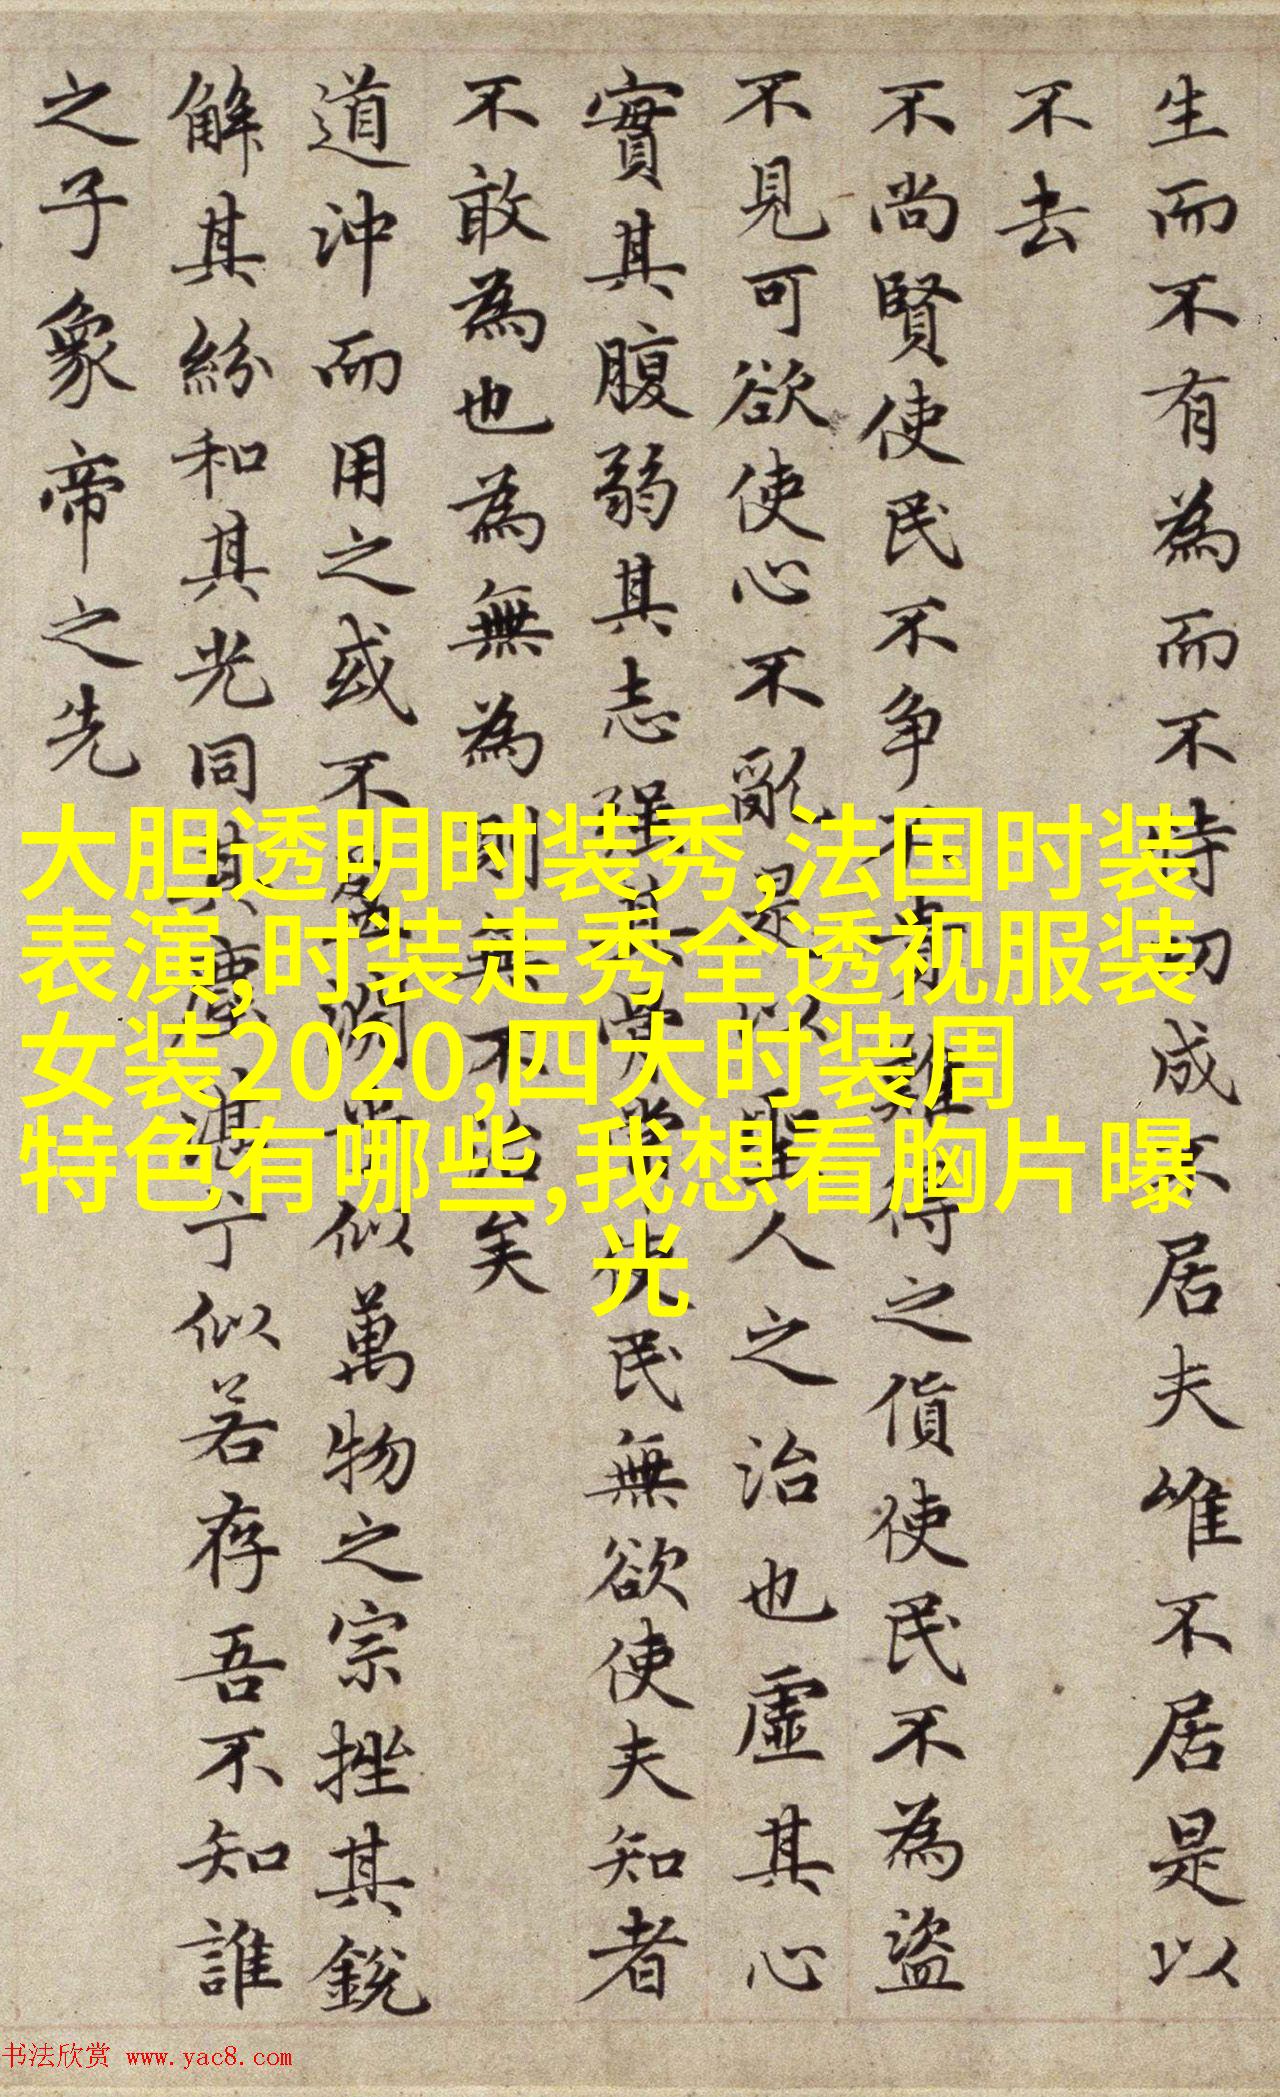 生而不有為而不恃功成不居夫唯不居是以
不去
不尚賢使民不争不貴難得之貨使民不為盜
不見可欲使心不亂是以聖人之治也虛其心
實其腹弱其志强其骨常使民無欲使夫知者
不敢為也為無為則無不治矣
道沖而用之或不盈淵兮似萬物之宗挫其銳
解其紛和其光同其塵湛兮似若存吾不知誰
之子象帝之先
大胆透明时装秀,法国时装
表演,时装走秀全透视服装
女装2020,四大时装周
特色有哪些,我想看胸片曝
光
书法欣赏 www.yac8.com